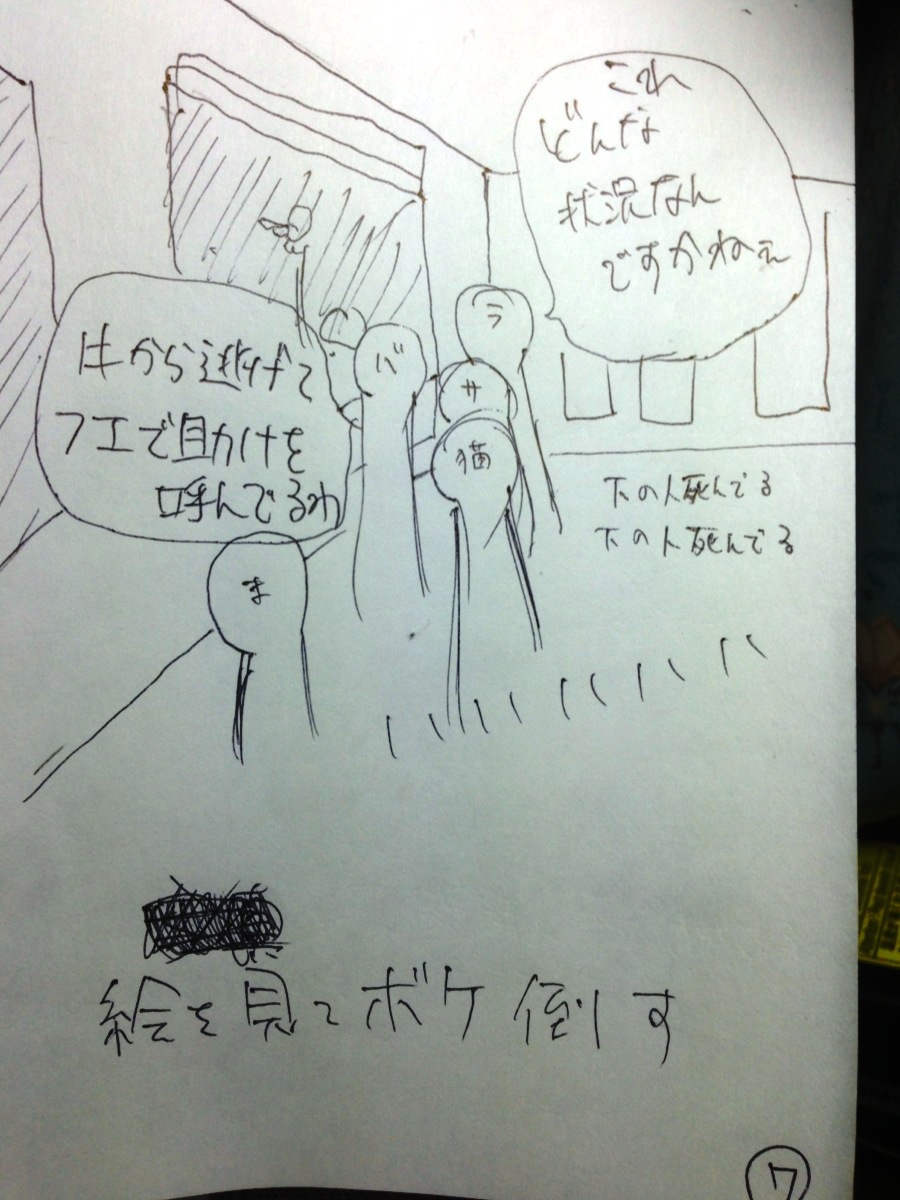 これ
どんな
状況なん
ですかねぇ
から逃げて
フエで助けを
呼んでるわ
ラ
バ
サ
猫
ま
下の人死んでる
下の人死んでる
絵を見てボケ倒す
7